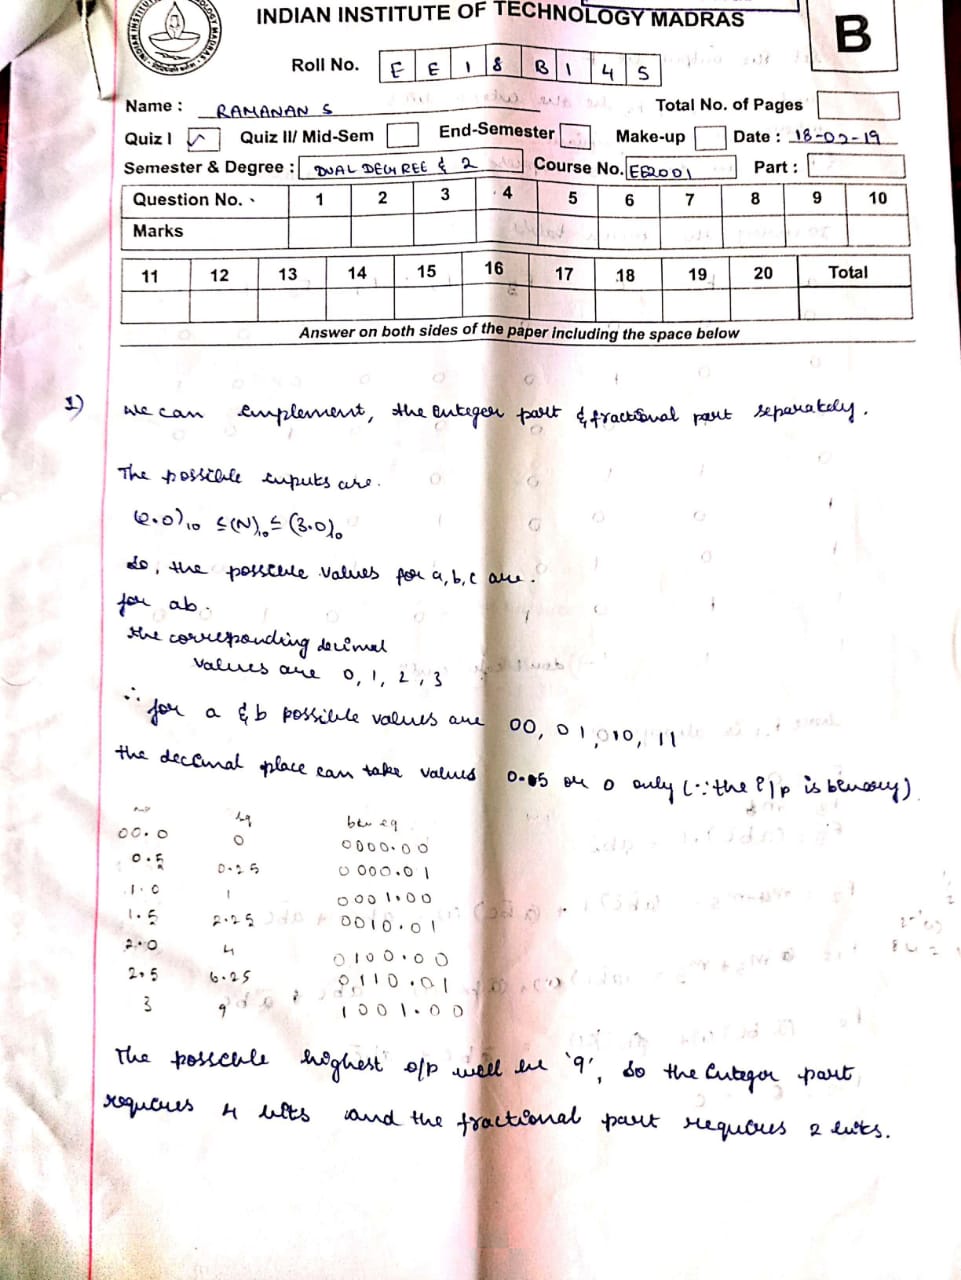 INDIAN INSTITUTE OF TECHNOLOGY MADRAS
B
Roll No. E E 1 8 B 1 4 5
Name : RAMANAN S Total No. of Pages
Quiz I Quiz II/ Mid-Sem End-Semester Make-up Date : 18-02-19
Semester & Degree : DUAL DEGREE & 2 Course No. EE2001 Part :
Question No. 1 2 3 4 5 6 7 8 9 10
Marks
11 12 13 14 15 16 17 18 19 20 Total
Answer on both sides of the paper including the space below
1) We can implement, the integer part & fractional part separately.
The possible inputs are.
(0.0)10 ≤ (N)10 ≤ (3.0)10
So, the possible values for a, b, c are.
for ab.
the corresponding decimal
values are 0, 1, 2, 3
∴ for a & b possible values are 00, 01, 010, 11
the decimal place can take values 0.5 or 0 only (∵ the i/p is binary)
sq bin eq
00.0 0 0000.00
0.5 0.25 0000.01
1.0 1 0001.00
1.5 2.25 0010.01
2.0 4 0100.00
2.5 6.25 0110.01
3 9 1001.00
The possible highest o/p will be '9', so the integer part
requires 4 bits and the fractional part requires 2 bits.